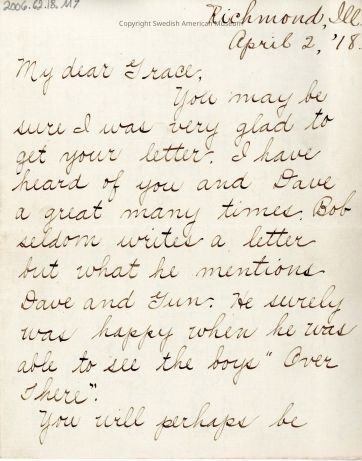 2006.63.18.117
Copyright Swedish American Museum
Richmond, Ill.
April 2, '18.
My dear Grace,
You may be
sure I was very glad to
get your letter. I have
heard of you and Dave
a great many times. Bob
seldom writes a letter
but what he mentions
Dave and Gun. He surely
was happy when he was
able to see the boys "Over
There".
You will perhaps be